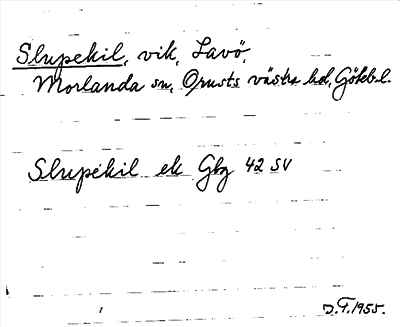 Slupekil, vik, Lavö,
Morlanda sn, Orusts västra hd, Göteb.l.
Slupekil ek Gbg 42 SV
D.F. 1955.